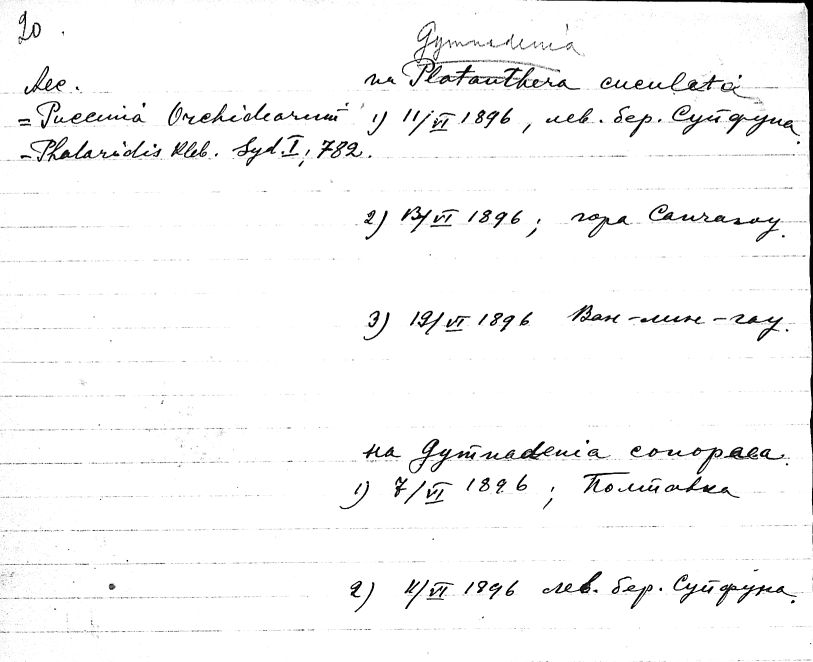 20.
Gymnadenia
Aec. на Platanthera cuculata
= Puccinia Orchidearum 1) 11/VI 1896, лев. бер. Суйфуна.
- Phalaridis Kleb. Syd. I, 782.
2) 13/VI 1896; гора Санчазоу.
3) 19/VI 1896 Ван-лин-гоу.
на Gymnadenia conopsea.
1) 7/VI 1896; Полтавка
2) 11/VI 1896 лев. бер. Суйфуна.